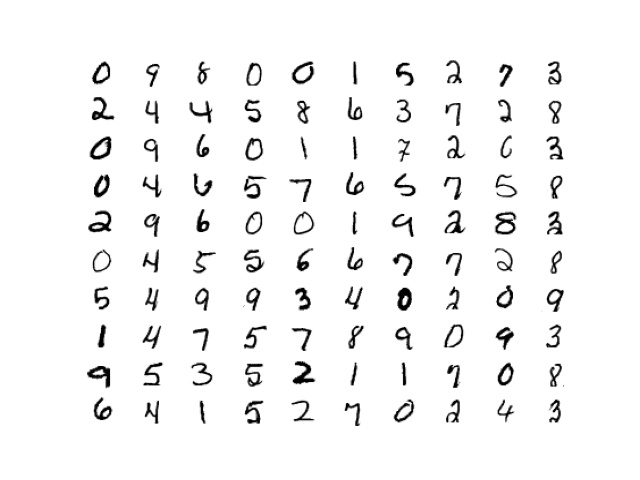 0 9 8 0 0 1 5 2 7 3
2 4 4 5 8 6 3 7 2 8
0 9 6 0 1 1 7 2 6 3
0 4 6 5 7 6 5 7 5 8
2 9 6 0 0 1 9 2 8 3
0 4 5 5 6 6 7 7 2 8
5 4 9 9 3 4 0 2 0 9
1 4 7 5 7 8 9 0 9 3
9 5 3 5 2 1 1 7 0 8
6 4 1 5 2 7 0 2 4 3